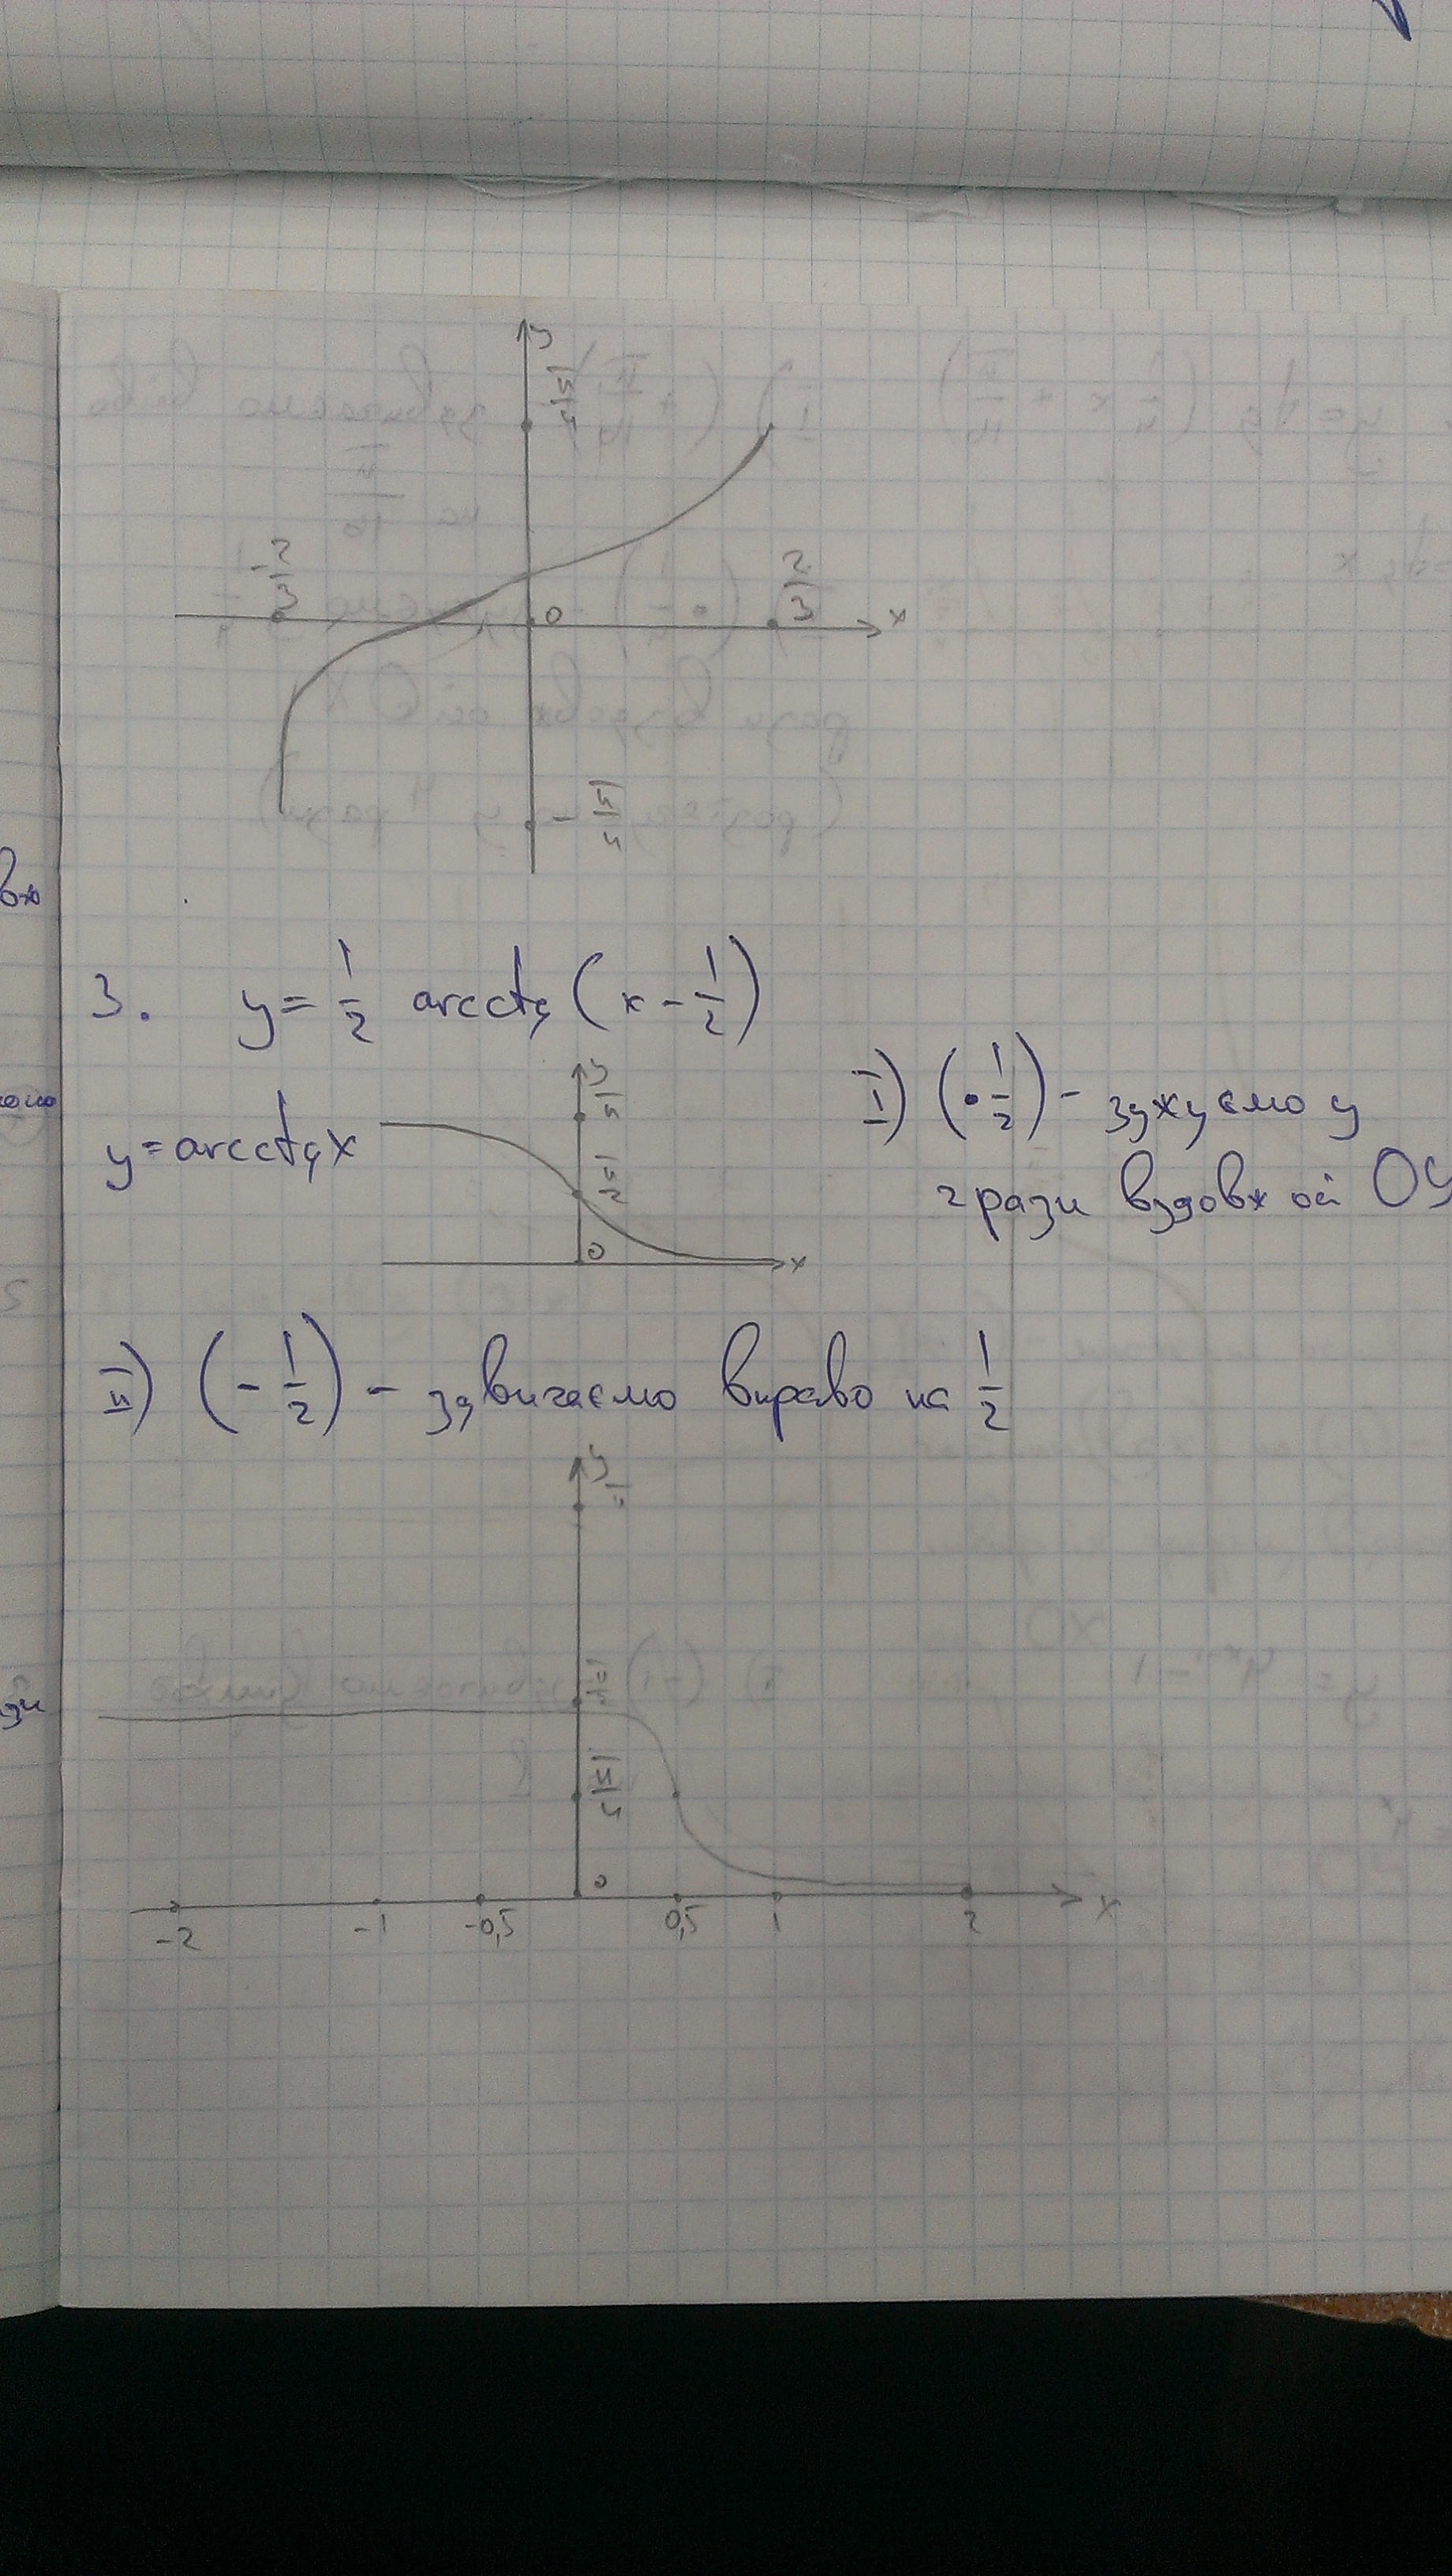 y
π/4
-2/3
2/3
0
x
-π/4
3. y = 1/2 arcctg (x - 1/2)
y = arcctg x
y
π
π/2
0
x
I) (· 1/2) - звужуємо у
2 рази вздовж осі OY
II) (- 1/2) - здвигаємо вправо на 1/2
y
π
π/2
π/4
0
-2 -1 -0,5 0,5 1 2 x